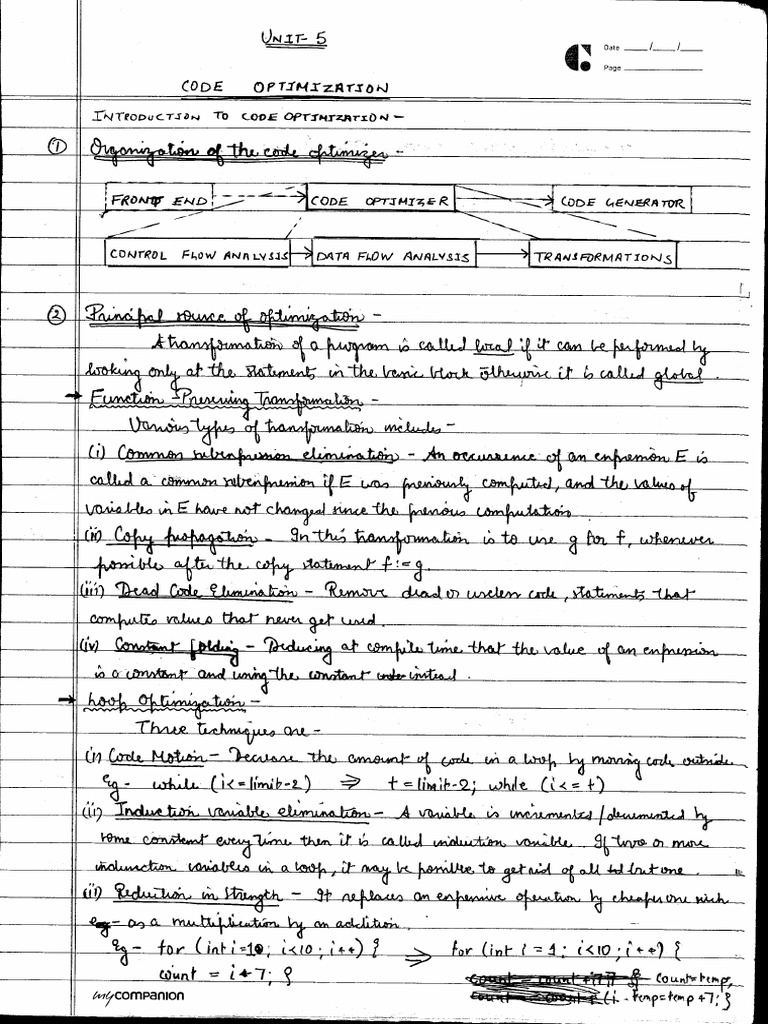 UNIT-5
Date ___/___/___
Page
CODE OPTIMIZATION
INTRODUCTION TO CODE OPTIMIZATION -
① Organization of the code optimizer -
FRONT END CODE OPTIMIZER CODE GENERATOR
CONTROL FLOW ANALYSIS DATA FLOW ANALYSIS TRANSFORMATIONS
② Principal source of optimization -
A transformation of a program is called local if it can be performed by
looking only at the statements in the basic block otherwise it is called global.
→ Function-Preserving Transformation -
Various types of transformation includes -
(i) Common subexpression elimination - An occurrence of an expression E is
called a common subexpression if E was previously computed, and the values of
variables in E have not changed since the previous computation.
(ii) Copy propagation - In this transformation is to use g for f, whenever
possible after the copy statement f:=g.
(iii) Dead Code Elimination - Remove dead or useless code, statements that
computes values that never get used.
(iv) Constant folding - Deducing at compile time that the value of an expression
is a constant and using the constant instead.
→ Loop Optimization -
Three techniques are -
(i) Code Motion - Decrease the amount of code in a loop by moving code outside.
Eg - while (i<=limit-2) ⇒ t=limit-2; while (i<=t)
(ii) Induction variable elimination - A variable is incremented/decremented by
some constant every time then it is called induction variable. If two or more
induction variables in a loop, it may be possible to get rid of all but one.
(iii) Reduction in Strength - It replaces an expensive operation by cheaper one such
as a multiplication by an addition.
Eg - for (int i=1; i<10; i++) { ⇒ for (int i=1; i<10; i++) {
count = i*7; } count=temp;
temp=temp+7; }
myCOMPANION